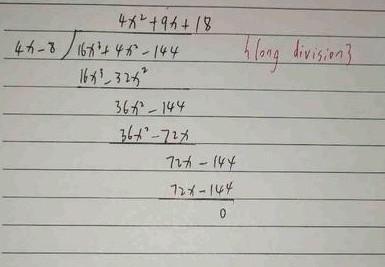 4x² + 9x + 18
4x - 8 ) 16x³ + 4x² - 144 {long division}
16x³ - 32x²
36x² - 144
36x² - 72x
72x - 144
72x - 144
0